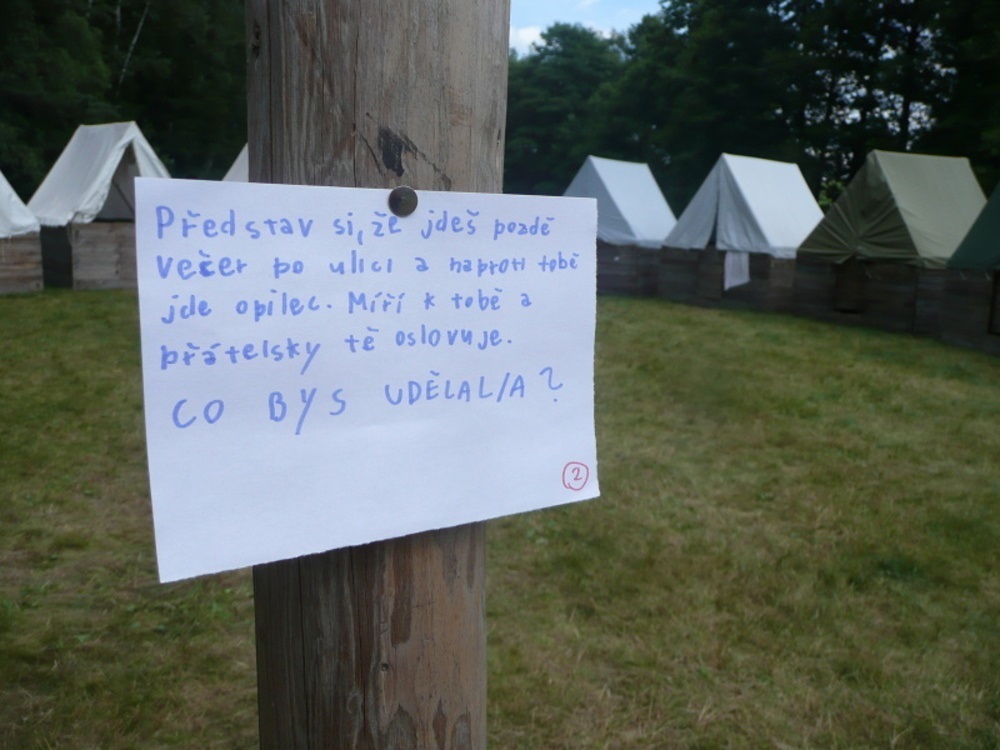 Představ si, že jdeš pozdě
večer po ulici a naproti tobě
jde opilec. Míří k tobě a
přátelsky tě oslovuje.
CO BYS UDĚLAL/A?
2